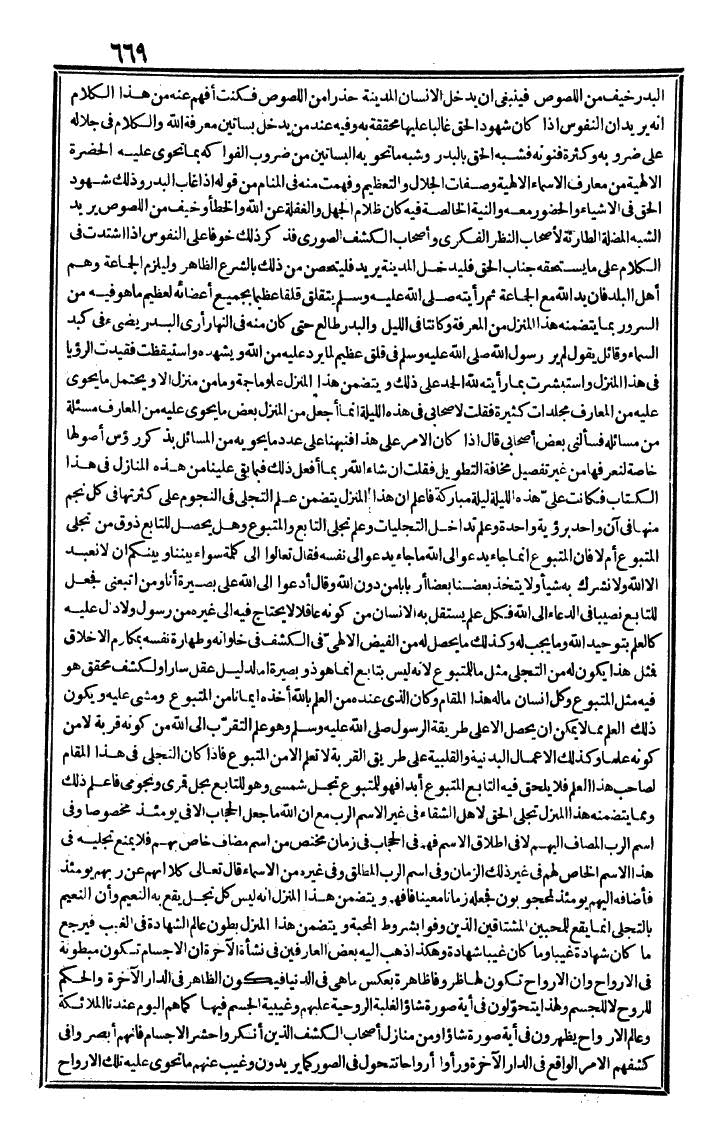 ٦٦٩
البدر خيف من اللصوص فينبغي ان يدخل الانسان المدينة حذرا من اللصوص فكنت أفهم عنه من هذا الكلام
انه يريد ان النفوس اذا كان شهود الحق غالبا عليها محققة به وفيه وعند من يدخل بساتين معرفة الله والكلام فى جلاله
على ضروبه وكثرة فنونه فشبه الحق بالبدر وشبه ما تحويه البساتين من ضروب الفواكه بما تحوى عليه الحضرة
الالهية من معارف الاسماء الالهية وصفات الجلال والتعظيم وفهمت منه فى المنام من قوله اذا غاب البدر وذلك شهود
الحق فى الاشياء والحضور معه والنية الخالصة فيه كان ظلام الجهل والغفلة عن الله والخطأ وخيف من اللصوص يريد
الشبه المضلة الطارئة لأصحاب النظر الفكرى وأصحاب الكشف الصورى فذكر ذلك خوفا على النفوس اذا اشتدت فى
الكلام على ما يستحقه جناب الحق فليدخل المدينة يريد فليتحصن من ذلك بالشرع الظاهر وليلزم الجماعة وهم
أهل البلد فان يد الله مع الجماعة ثم رأيته صلى الله عليه وسلم يتقلق قلقا عظيما بجميع أعضائه لعظيم ما هو فيه من
السرور بما يتضمنه هذا المنزل من المعرفة وكاننا فى الليل والبدر طالع حتى كان منه فى النهار أرى البدر يضىء فى كبد
السماء وقائل يقول لم ير رسول الله صلى الله عليه وسلم فى قلق عظيم لما يرد عليه من الله ويشهده واستيقظت فقيدت الرؤيا
فى هذا المنزل واستبشرت بما رأيته لله الحمد على ذلك ويتضمن هذا المنزل علوما جة وما من منزل الا ويحتمل ما يحوى
عليه من المعارف مجلدات كثيرة فقلت لاصحابى فى هذه الليلة انما أجعل من المنزل بعض ما يحوى عليه من المعارف مسئلة
من مسائله فسألنى بعض أصحابى قال اذا كان الامر على هذا فنبهنا على عدد ما يحويه من المسائل بذكر رؤس أصولها
خاصة لنعرفها من غير تفصيل مخافة التطويل فقلت ان شاء الله ربما أفعل ذلك فيما بقى علينا من هذه المنازل فى هذا
الكتاب فكانت علىّ هذه الليلة ليلة مباركة فاعلم ان هذا المنزل يتضمن علم التجلى فى النجوم على كثرتها فى كل نجم
منها فى آن واحد برؤية واحدة وعلم تداخل التجليات وعلم تجلى التابع والمتبوع وهل يحصل للتابع ذوق من تجلى
المتبوع أم لا فان المتبوع انما جاء يدعو الى الله ما جاء يدعو الى نفسه فقال تعالوا الى كلمة سواء بيننا وبينكم ان لا نعبد
الا الله ولا نشرك به شيأ ولا يتخذ بعضنا بعضا أربابا من دون الله وقال أدعوا الى الله على بصيرة أنا ومن اتبعنى فجعل
للتابع نصيبا فى الدعاء الى الله فكل علم يستقل به الانسان من كونه عاقلا لا يحتاج فيه الى غيره من رسول ولا دل عليه
كالعلم بتوحيد الله وما يجب له وكذلك ما يحصل له من الفيض الالهىّ فى الكشف فى خلوانه وطهارة نفسه بمكارم الاخلاق
فمثل هذا يكون له من التجلى مثل ما للمتبوع لانه ليس بتابع انما هو ذو بصيرة اما لدليل عقل سار أو لكشف محقق هو
فيه مثل المتبوع وكل انسان ماله هذا المقام وكان الذى عنده من العلم بالله أخذه ايمانا من المتبوع ومشى عليه ويكون
ذلك العلم مما لا يمكن ان يحصل الا على طريقة الرسول صلى الله عليه وسلم وهو علم التقرّب الى الله من كونه قربة لا من
كونه علما وكذلك الاعمال البدنية والقلبية على طريق القربة لا تعلم الا من المتبوع فاذا كان التجلى فى هذا المقام
لصاحب هذا العلم فلا يلحق فيه التابع المتبوع أبدا فهو للمتبوع تجل شمسى وهو للتابع تجل قمرى ونجوى فاعلم ذلك
ومما يتضمنه هذا المنزل تجلى الحق لاهل الشقاء فى غير الاسم الرب مع ان الله ما جعل الحجاب الا فى يومئذ مخصوصا وفى
اسم الرب المضاف اليهم لا فى اطلاق الاسم فهم فى الحجاب فى زمان مختص من اسم مضاف خاص بهم فلا يمنع تجليه فى
هذا الاسم الخاص لهم فى غير ذلك الزمان وفى اسم الرب المطلق وفى غيره من الاسماء قال تعالى كلا انهم عن ربهم يومئذ
فأضافه اليهم يومئذ لمحجوبون فجعله زمانا معينا فافهم ويتضمن هذا المنزل انه ليس كل تجل يقع به النعيم وأن النعيم
بالتجلى انما يقع للمحبين المشتاقين الذين وفوا بشروط المحبة ويتضمن هذا المنزل بطون عالم الشهادة فى الغيب فيرجع
ما كان شهادة غيبا وما كان غيبا شهادة وهكذا ذهب اليه بعض العارفين فى نشأة الآخرة ان الاجسام تكون مبطونة
فى الارواح وان الارواح تكون لها ظروفا ظاهرة بعكس ما هى فى الدنيا فيكون الظاهر فى الدار الآخرة والحكم
للروح لا للجسم ولهذا يتحوّلون فى أية صورة شاؤا لغلبة الروحية عليهم وغيبية الجسم فيها كما هم اليوم عندنا الملائكة
وعالم الارواح يظهرون فى أية صورة شاؤا ومن منازل أصحاب الكشف الذين أنكروا حشر الاجسام فانهم أبصروا فى
كشفهم الامر الواقع فى الدار الآخرة ورأوا أرواحا تتحول فى الصور كما يريدون وغيب عنهم ما تحوى عليه تلك الارواح